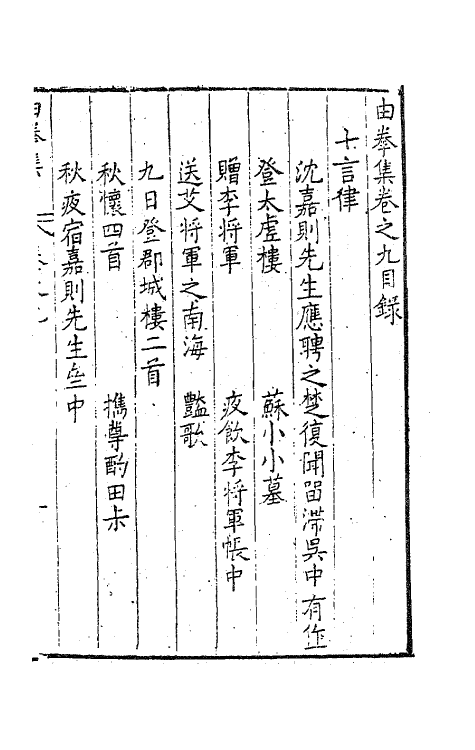 由拳集卷之九目錄
七言律
沈嘉則先生應聘之楚復聞畱滯吳中有作
登太虛樓　蘇小小墓
贈李將軍　夜飲李將軍帳中
送艾將軍之南海　豔歌
九日登郡城樓二首
秋懷四首　攜尊酌田未
秋夜宿嘉則先生齋中
由拳集　卷之九　一